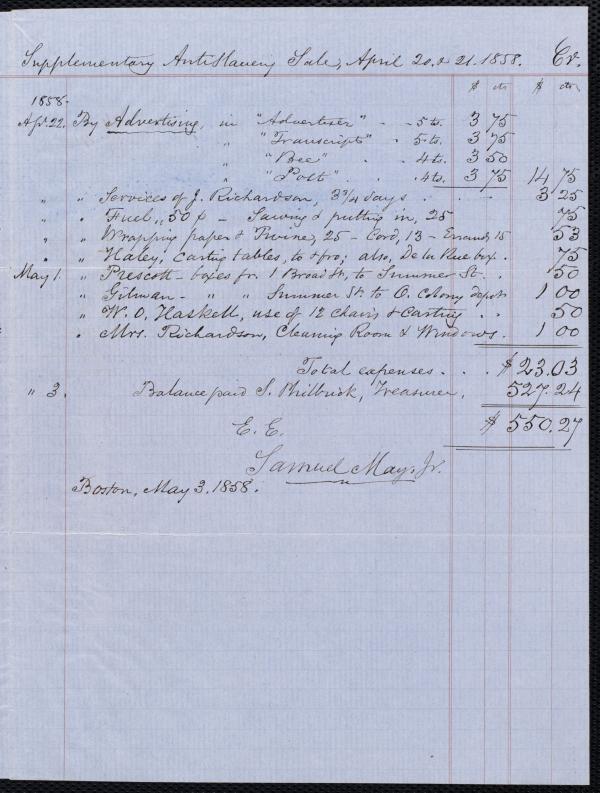 Supplementary AntiSlavery Sale, April 20 & 21. 1858. Cr.
$ cts $ cts
1858.
Apr. 22. By Advertising, in "Advertiser" - - 5 ts. 3 75
" "Transcript" - 5 ts. 3 75
" "Bee" . . 4 ts. 3 50
" "Post" . . 4 ts. 3 75 14 75
" " Services of J. Richardson, 3 3/4 days . . - - 3 25
" " Fuel, 50 ¢ - Sawing & putting in, 25 75
" " Wrapping paper & Twine, 25 - Cord, 13 - Errands, 15 53
" " Haley, carting tables, to & fro; also, De la Rue box . 75
May 1. " Prescott - boxes for 1 Broad St, to Summer St. - . 50
" Gilman - " " Summer St. to O. Colony depot 1 00
" W. O. Haskell, use of 12 Chairs & Carting . . 50
" Mrs. Richardson, Cleaning Room & Windows . 1 00
Total expenses . . . $23.03
" 3. Balance paid S. Philbrick, Treasurer, 527.24
$ 550.27
E. E.
Samuel May, Jr.
Boston, May 3. 1858.